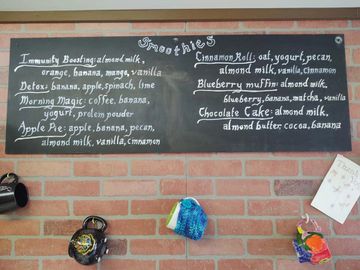 Smoothies
Immunity Boosting: almond milk,
orange, banana, mango, vanilla
Detox: banana, apple, spinach, lime
Morning Magic: coffee, banana,
yogurt, protein powder
Apple Pie: apple, banana, pecan,
almond milk, vanilla, cinnamon
Cinnamon Roll: oat, yogurt, pecan,
almond milk, vanilla, cinnamon
Blueberry muffin: almond milk,
blueberry, banana, matcha, vanilla
Chocolate Cake: almond milk,
almond butter, cocoa, banana